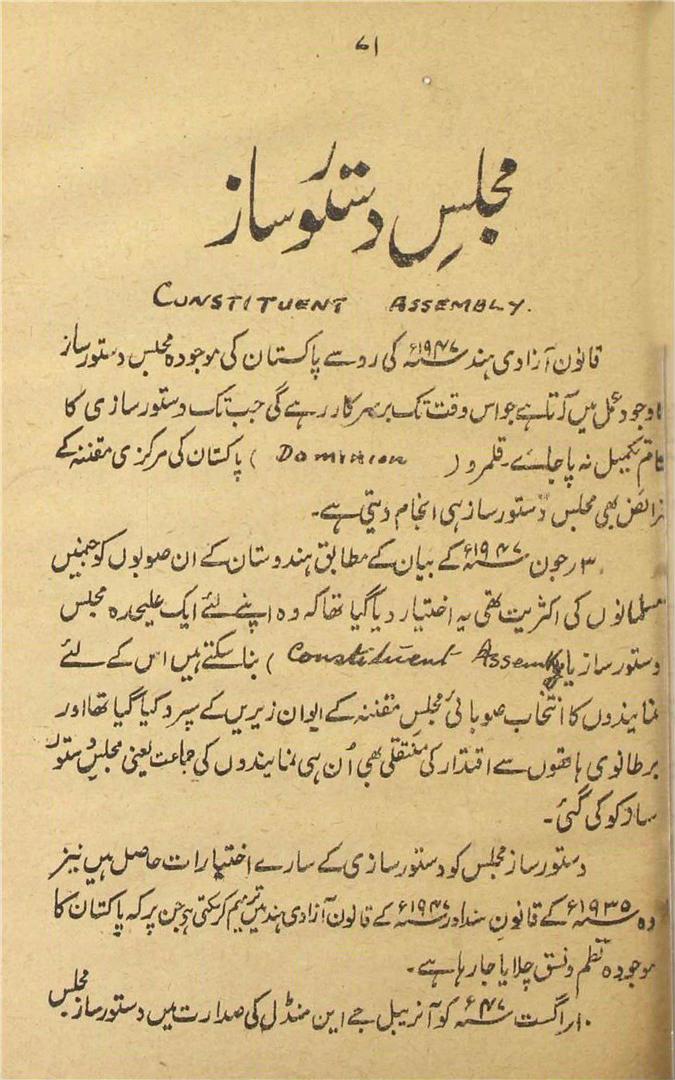 ۷۱
مجلسِ دستور ساز
CONSTITUENT ASSEMBLY.
قانون آزادی ہند ۱۹۴۷ء کی رو سے پاکستان کی موجودہ مجلس دستور ساز
وجود عمل میں آتا ہے جو اس وقت تک برسرِ کار رہے گی جب تک دستور سازی کا
کام تکمیل نہ پا جائے۔ قلمرو (Dominion) پاکستان کی مرکزی مقننہ کے
فرائض بھی مجلس دستور ساز ہی انجام دیتی ہے۔
۳؍ جون ۱۹۴۷ء کے بیان کے مطابق ہندوستان کے ان صوبوں کو جنمیں
مسلمانوں کی اکثریت تھی یہ اختیار دیا گیا تھا کہ وہ اپنے لئے ایک علیحدہ مجلس
دستور ساز یا (Constituent Assembly) بنا سکتے ہیں اس کے لئے
نمایندوں کا انتخاب صوبائی مجلسِ مقننہ کے ایوان زیریں کے سپرد کیا گیا تھا اور
برطانوی ہاتھوں سے اقتدار کی منتقلی بھی اُن ہی نمایندوں کی جماعت یعنی مجلسِ دستور
ساز کو کی گئی۔
دستور ساز مجلس کو دستور سازی کے سارے اختیارات حاصل ہیں نیز
وہ ۱۹۳۵ء کے قانونِ ہند اور ۱۹۴۷ء کے قانون آزادی ہند میں ترمیم کر سکتی ہے جن پر کہ پاکستان کا
موجودہ نظم و نسق چلایا جا رہا ہے۔
۱۰؍ اگست ۴۷ء کو آنریبل جے این منڈل کی صدارت میں دستور ساز مجلس